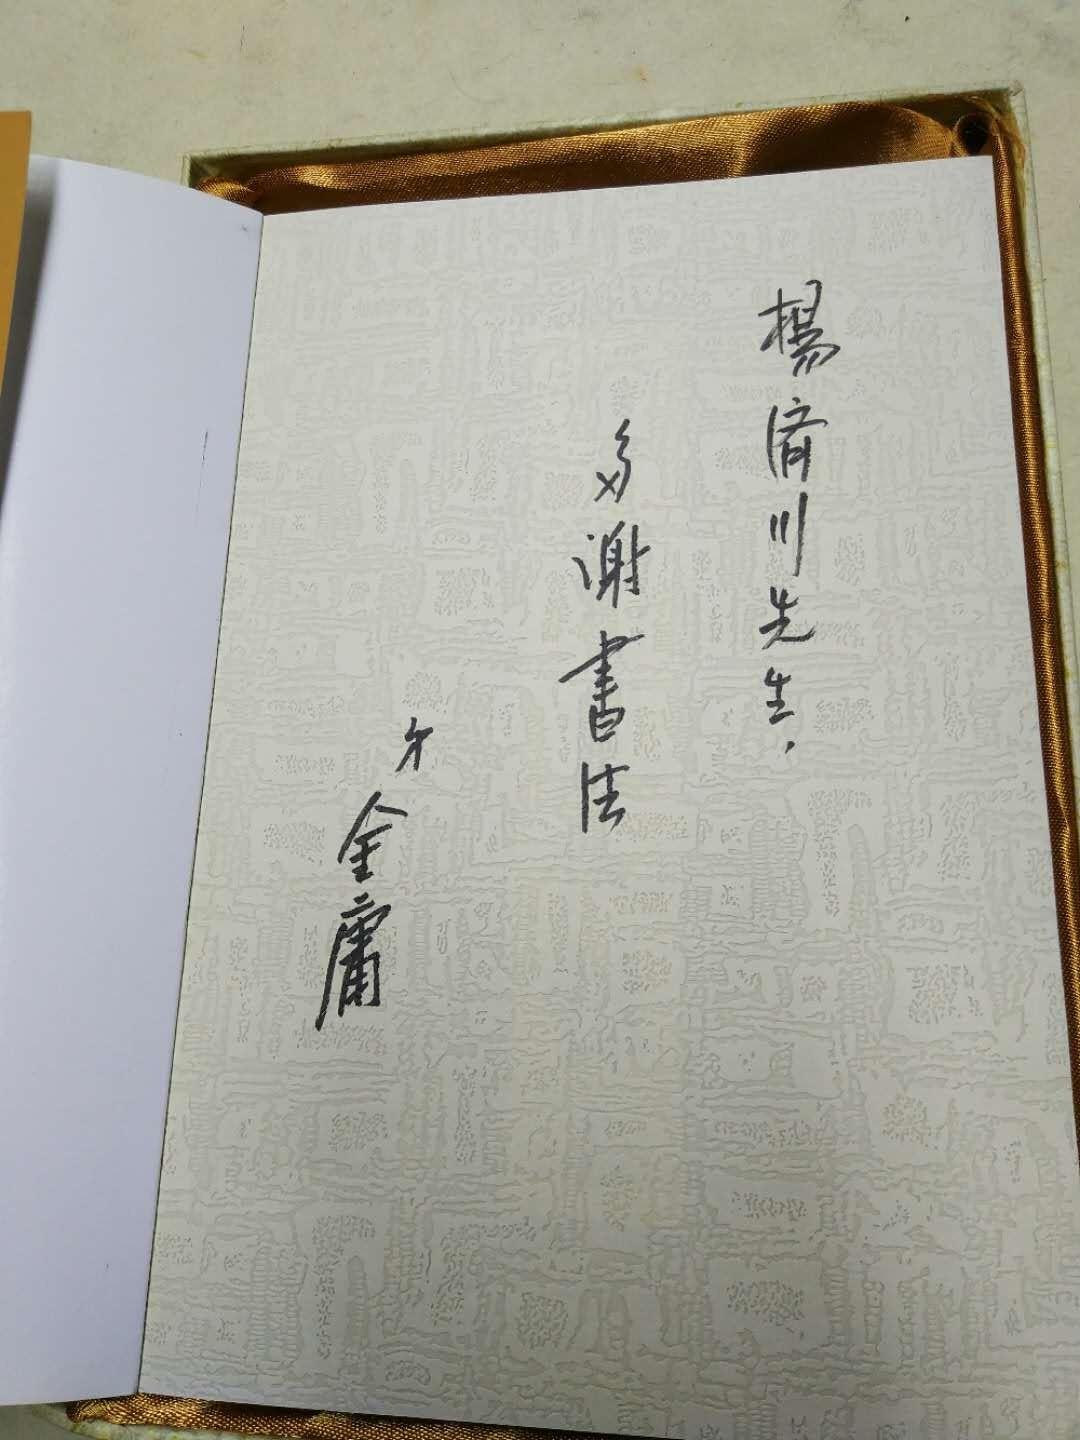 楊済川先生，
多谢書法
弟
金庸